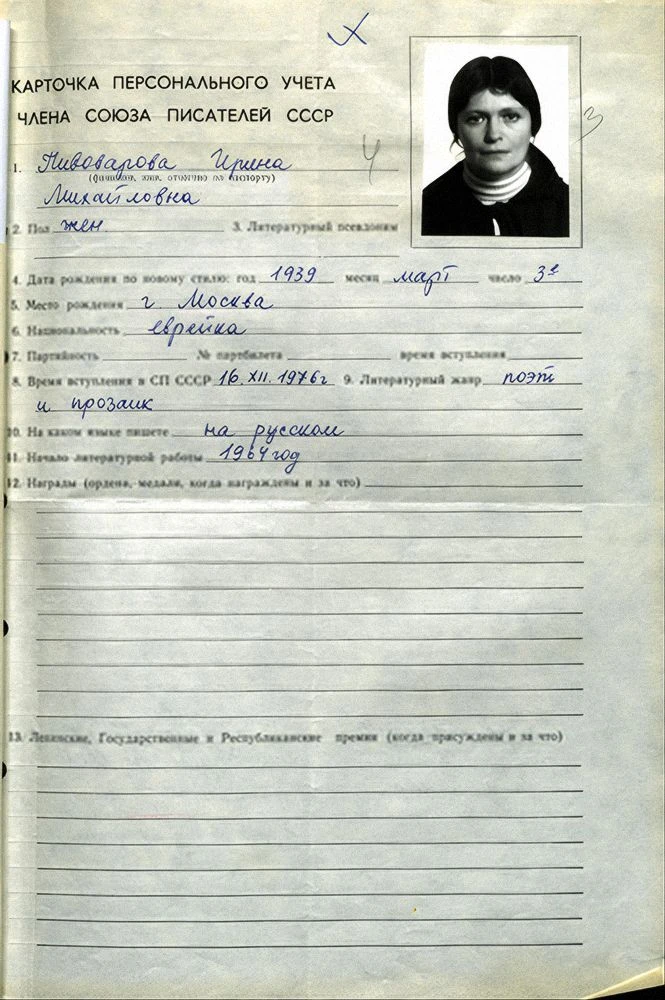 Х
КАРТОЧКА ПЕРСОНАЛЬНОГО УЧЕТА
ЧЛЕНА СОЮЗА ПИСАТЕЛЕЙ СССР
3
4
1. Пивоварова Ирина
(фамилия, имя, отчество по паспорту)
Михайловна
2. Пол жен 3. Литературный псевдоним
4. Дата рождения по новому стилю: год 1939 месяц март число 3е
5. Место рождения г Москва
6. Национальность еврейка
7. Партийность № партбилета время вступления
8. Время вступления в СП СССР 16.XII.1976г 9. Литературный жанр поэт
и прозаик
10. На каком языке пишете на русском
11. Начало литературной работы 1964 год
12. Награды (ордена, медали, когда награждены и за что)
13. Ленинские, Государственные и Республиканские премии (когда присуждены и за что)